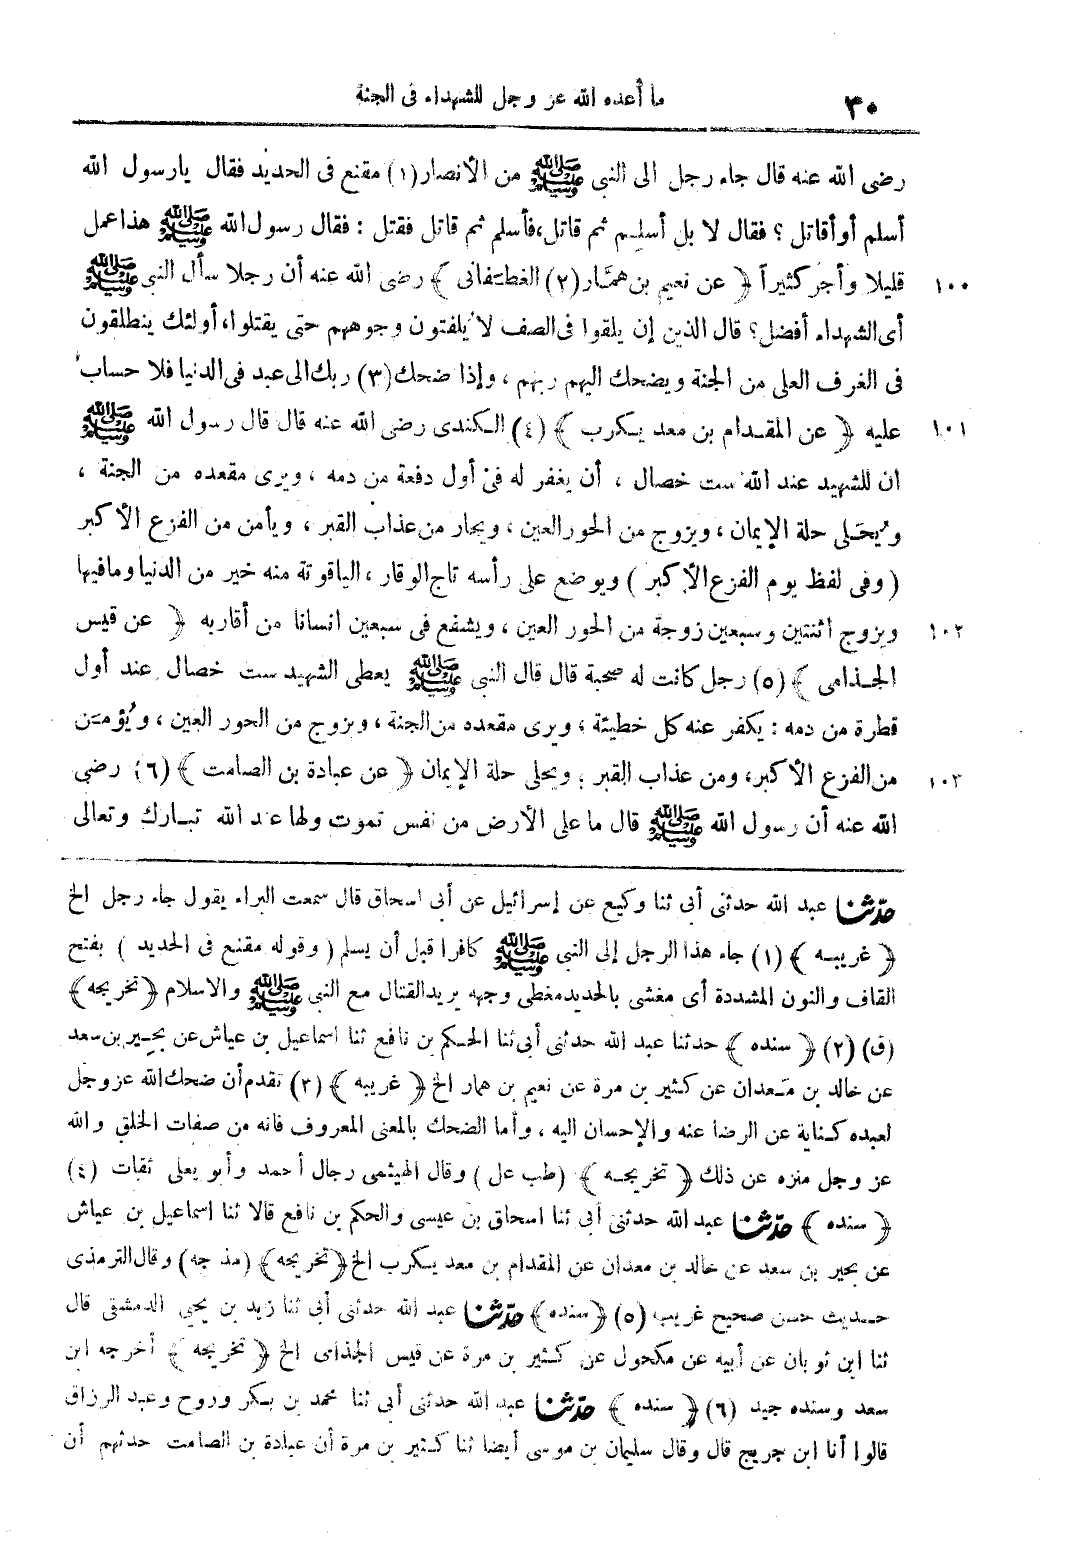 ٣٠ ما أعده الله عز وجل للشهداء فى الجنة
رضى الله عنه قال جاء رجل الى النبى ﷺ من الأنصار(١) مقنع فى الحديد فقال يارسول الله
أسلم أو أقاتل ؟ فقال لا بل أسلم ثم قاتل، فأسلم ثم قاتل فقتل : فقال رسول الله ﷺ هذا عمل
١٠٠ قليلا وأجر كثيراً ﴿ عن نعيم بن همَّار(٢) الغطفانى ﴾ رضى الله عنه أن رجلا سأل النبى ﷺ
أى الشهداء أفضل؟ قال الذين إن يلقوا فى الصف لا يلفتون وجوههم حتى يقتلوا، أولئك ينطلقون
فى الغرف العلى من الجنة ويضحك اليهم ربهم ، وإذا ضحك(٣) ربك الى عبد فى الدنيا فلا حساب
١٠١ عليه ﴿ عن المقدام بن معد يكرب ﴾ (٤) الكندى رضى الله عنه قال قال رسول الله ﷺ
ان للشهيد عند الله ست خصال ، أن يغفر له فى أول دفعة من دمه ، ويرى مقعده من الجنة ،
ويُحَلى حلة الإيمان ، ويزوج من الحور العين ، ويجار من عذاب القبر ، ويأمن من الفزع الأكبر
( وفى لفظ يوم الفزع الأكبر ) ويوضع على رأسه تاج الوقار ، الياقوتة منه خير من الدنيا ومافيها
١٠٢ ويزوج اثنتين وسبعين زوجة من الحور العين ، ويشفع فى سبعين انسانا من أقاربه ﴿ عن قيس
الجذامى ﴾ (٥) رجل كانت له صحبة قال قال النبى ﷺ يعطى الشهيد ست خصال عند أول
قطرة من دمه : يكفر عنه كل خطيئة ، ويرى مقعده من الجنة ، ويزوج من الحور العين ، ويُؤمن
١٠٣ من الفزع الأكبر، ومن عذاب القبر ، ويحلى حلة الإيمان ﴿ عن عبادة بن الصامت ﴾ (٦) رضى
الله عنه أن رسول الله ﷺ قال ما على الأرض من نفس تموت ولها عند الله تبارك وتعالى
حدّثنا عبد الله حدثنى أبى ثنا وكيع عن إسرائيل عن أبى اسحاق قال سمعت البراء يقول جاء رجل الخ
﴿ غريبه ﴾ (١) جاء هذا الرجل إلى النبى ﷺ كافرا قبل أن يسلم ( وقوله مقنع فى الحديد ) بفتح
القاف والنون المشددة أى مغشى بالحديد مغطى وجهه يريد القتال مع النبى ﷺ والاسلام ﴿ تخريجه ﴾
(ق) (٢) ﴿ سنده ﴾ حدثنا عبد الله حدثنى أبى ثنا الحكم بن نافع ثنا اسماعيل بن عياش عن بحير بن سعد
عن خالد بن معدان عن كثير بن مرة عن نعيم بن همار الخ ﴿ غريبه ﴾ (٣) تقدم أن ضحك الله عز وجل
لعبده كناية عن الرضا عنه والإحسان اليه ، وأما الضحك بالمعنى المعروف فانه من صفات الخلق والله
عز وجل منزه عن ذلك ﴿ تخريجه ﴾ (طب عل ) وقال الهيثمى رجال أحمد وأبو يعلى ثقات (٤)
﴿ سنده ﴾ حدّثنا عبد الله حدثنى أبى ثنا اسحاق بن عيسى والحكم بن نافع قالا ثنا اسماعيل بن عياش
عن بحير بن سعد عن خالد بن معدان عن المقدام بن معد يكرب الخ ﴿ تخريجه ﴾ (مذ جه) وقال الترمذى
حديث حسن صحيح غريب (٥) ﴿ سنده ﴾ حدّثنا عبد الله حدثنى أبى ثنا زيد بن يحيى الدمشقى قال
ثنا ابن ثوبان عن أبيه عن مكحول عن كثير بن مرة عن قيس الجذامى الخ ﴿ تخريجه ﴾ أخرجه ابن
سعد وسنده جيد (٦) ﴿ سنده ﴾ حدّثنا عبد الله حدثنى أبى ثنا محمد بن بكر وروح وعبد الرزاق
قالوا أنا ابن جريج قال وقال سليمان بن موسى أيضا ثنا كثير بن مرة أن عبادة بن الصامت حدثهم أن